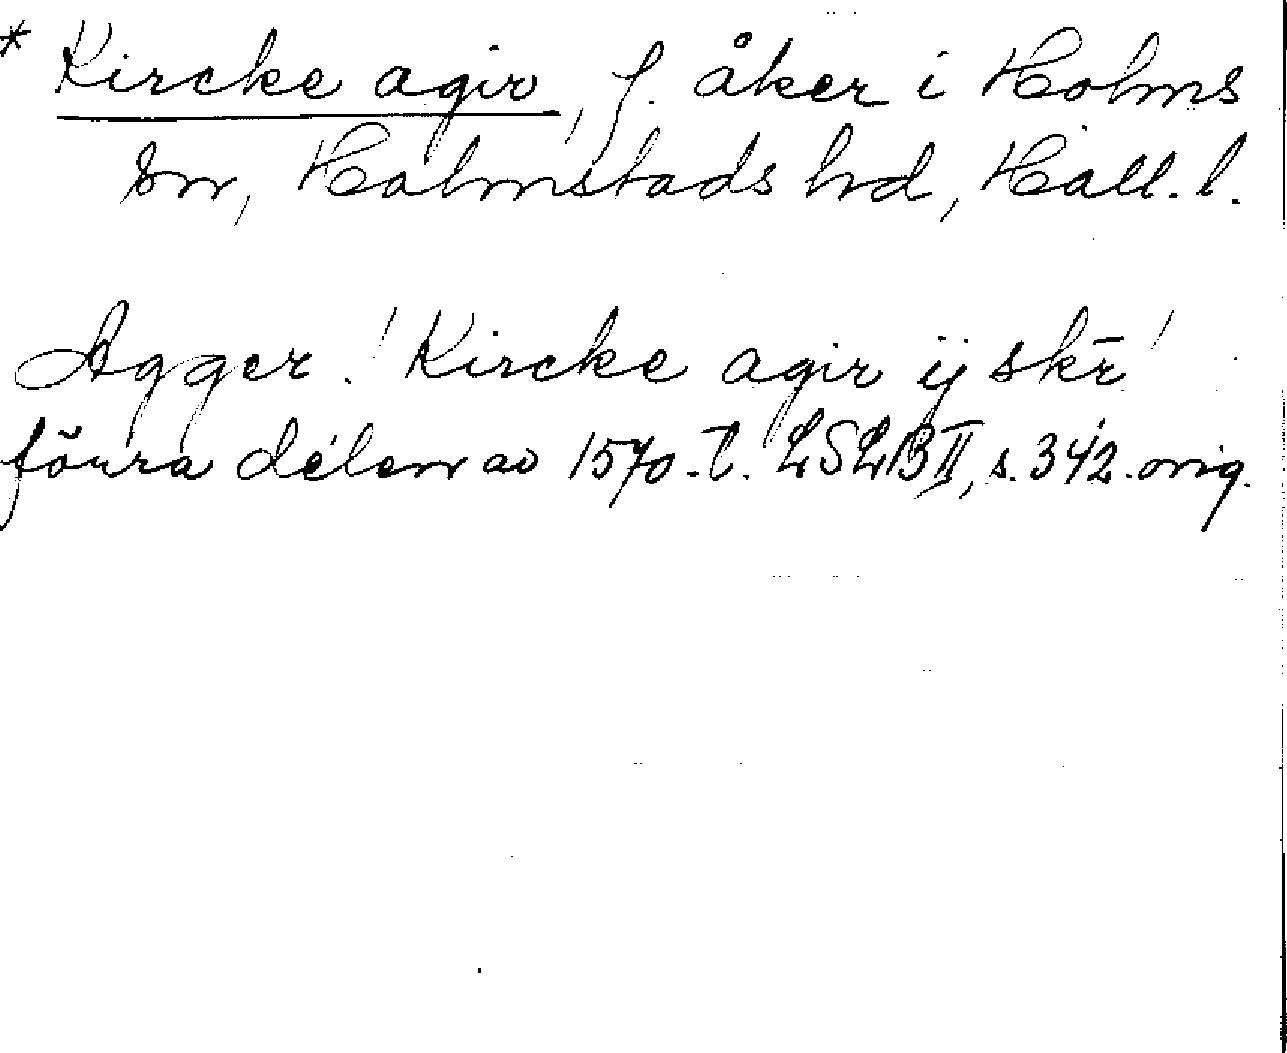 * Kircke agir, f. åker i Holms
sn, Halmstads hrd, Hall. l.
Agger. 'Kircke agir ij skr̄'
förra delen av 1570-t. LSLB II, s. 342. orig.